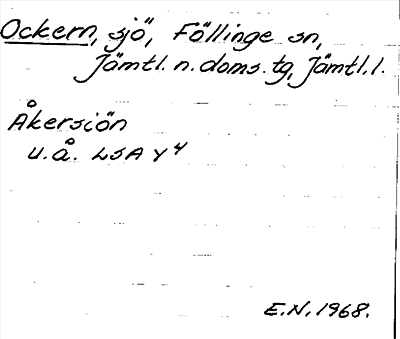 Ockern, sjö, Föllinge sn,
Jämtl. n. doms. tg, Jämtl. l.
Åkersiön
u. å. LSA Y 4
E.N. 1968.